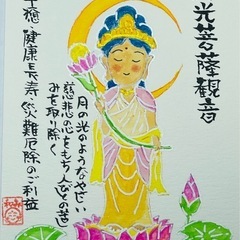 光菩薩観音
月の光のようなやさしい
慈悲の心をもち人びとの苦
みを取り除く
癒・健康長寿・災難厄除のご利益